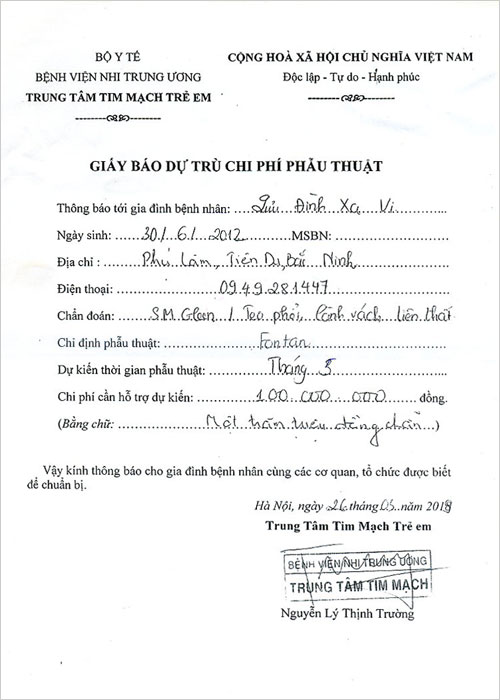 BỘ Y TẾ
BỆNH VIỆN NHI TRUNG ƯƠNG
TRUNG TÂM TIM MẠCH TRẺ EM
CỘNG HOÀ XÃ HỘI CHỦ NGHĨA VIỆT NAM
Độc lập - Tự do - Hạnh phúc
GIẤY BÁO DỰ TRÙ CHI PHÍ PHẪU THUẬT
Thông báo tới gia đình bệnh nhân: Đình Xa Vi
Ngày sinh: 30/6/2012 MSBN:
Địa chỉ : Phú Lâm, Tiên Du, Bắc Ninh
Điện thoại: 0949281447
Chẩn đoán: S.M Gleen / Teo phổi, Kênh vách liên thất
Chỉ định phẫu thuật: Fontan
Dự kiến thời gian phẫu thuật: Tháng 5
Chi phí cần hỗ trợ dự kiến: 100.000.000 đồng.
(Bằng chữ: Một trăm triệu đồng chẵn)
Vậy kính thông báo cho gia đình bệnh nhân cùng các cơ quan, tổ chức được biết
để chuẩn bị.
Hà Nội, ngày 26 tháng 03 năm 2018
Trung Tâm Tim Mạch Trẻ em
BỆNH VIỆN NHI TRUNG ƯƠNG
TRUNG TÂM TIM MẠCH
Nguyễn Lý Thịnh Trường